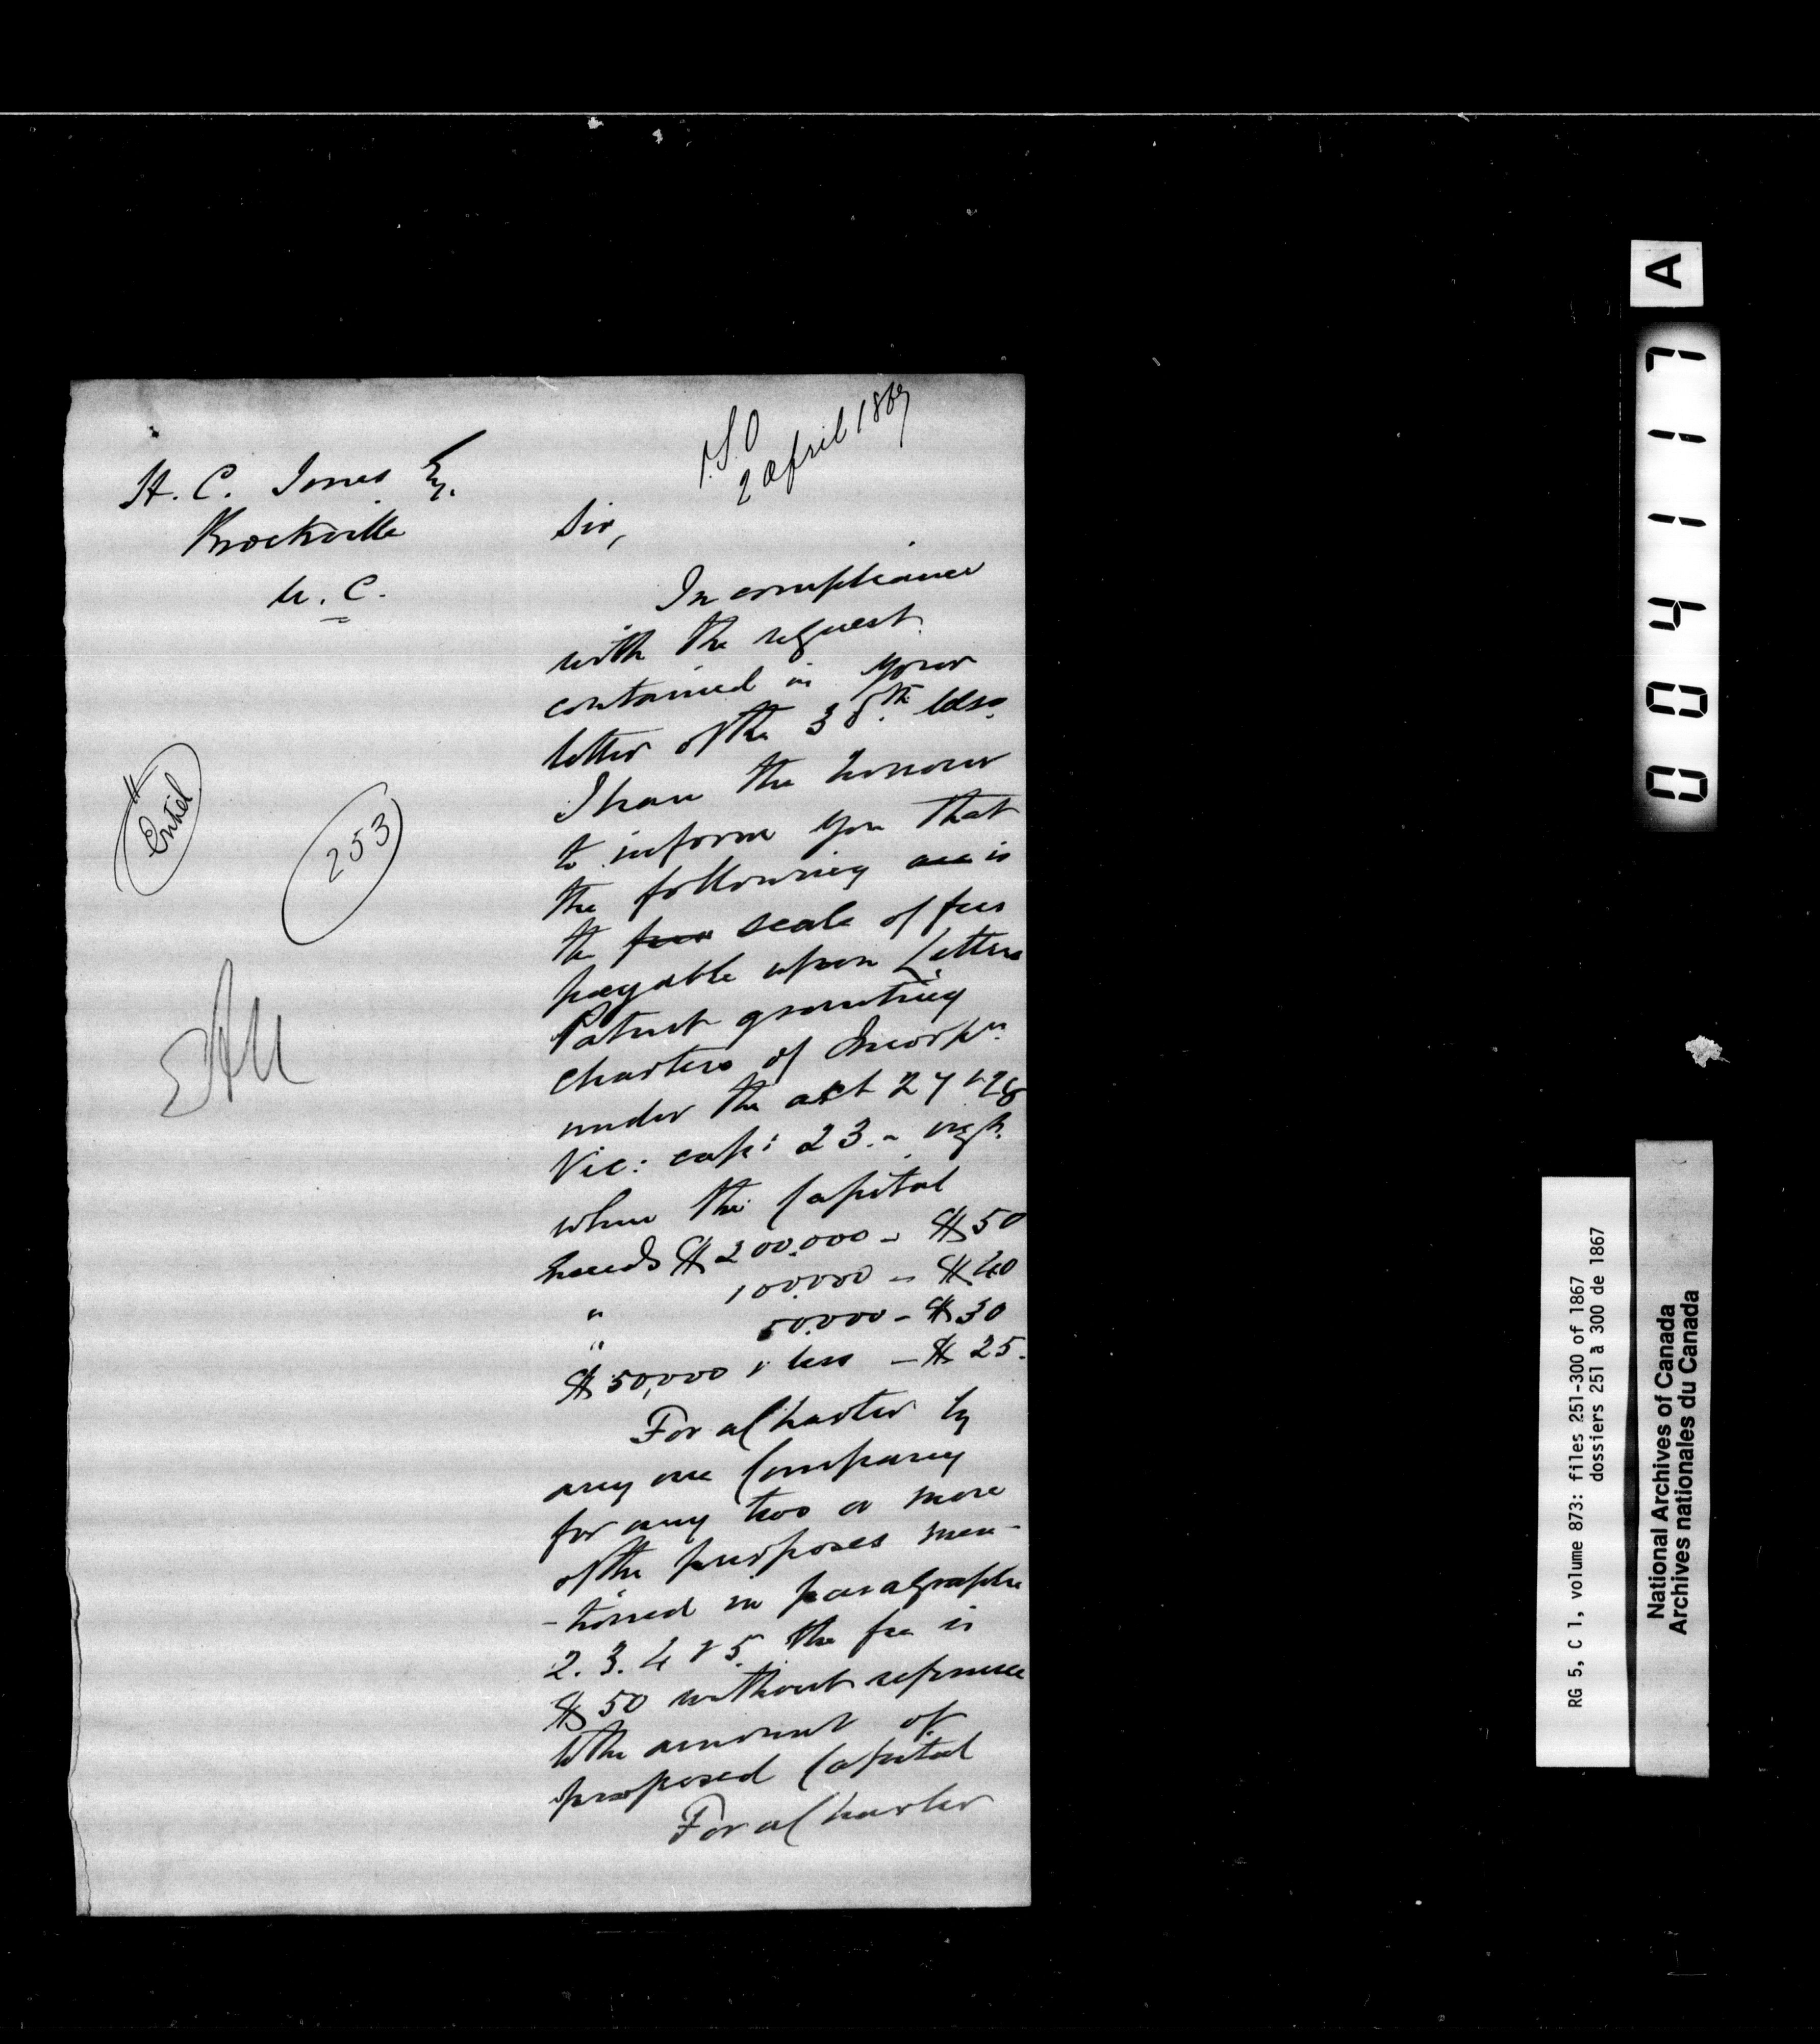 H. C. Jones Esq.
Brockville
U. C.
P.S.O
2 April 1867
Sir,
In compliance
with the request
contained in your
letter of the 30th Ulto.
I have the honour
to inform you that
the following are is
the fees scale of fees
payable upon Letters
Patent granting
charters of Incorpn.
under the act 27 & 28
Vic: cap: 23. ~ viz.
when the Capital
exceeds $200.000 ~ $50
" 100.000 ~ $40
" 50.000 ~ $30
$50,000 & less — $25.
For a Charter by
any one Company
for any two or more
of the purposes men-
-tioned in paragraphs
2. 3. 4 & 5. the fee is
$50 without reference
to the amount of
proposed Capital
For a Charter
Entd
253
A
004117
RG 5, C 1, volume 873: files 251-300 of 1867
dossiers 251 à 300 de 1867
National Archives of Canada
Archives nationales du Canada